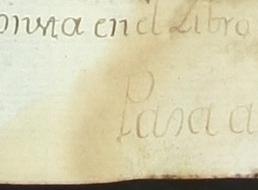 en el Libro
Pasa a